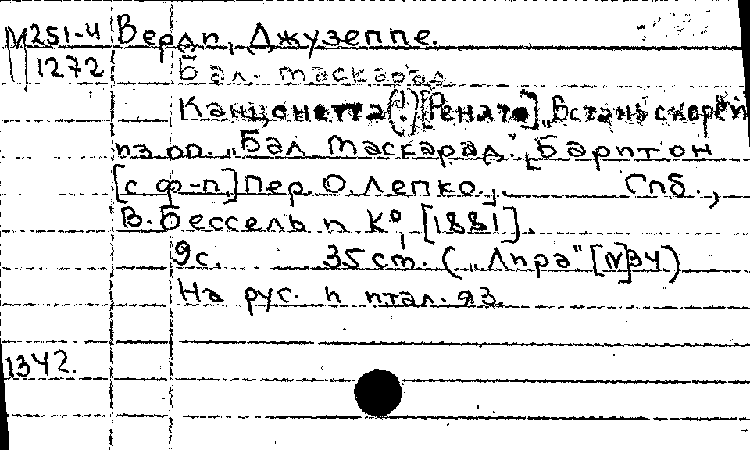 М251-4 Верди, Джузеппе.
1272 Бал-маскарад
Канцонетта (!) [Ренато] „Встань скорей"
из оп. „Бал маскарад", [Баритон
[с ф-п.] Пер. О. Лепко., Спб.,
В. Бессель и К⁰, [1881].
9с. 35 ст. („Лира" [N]34)
На рус. и итал. яз.
1342.